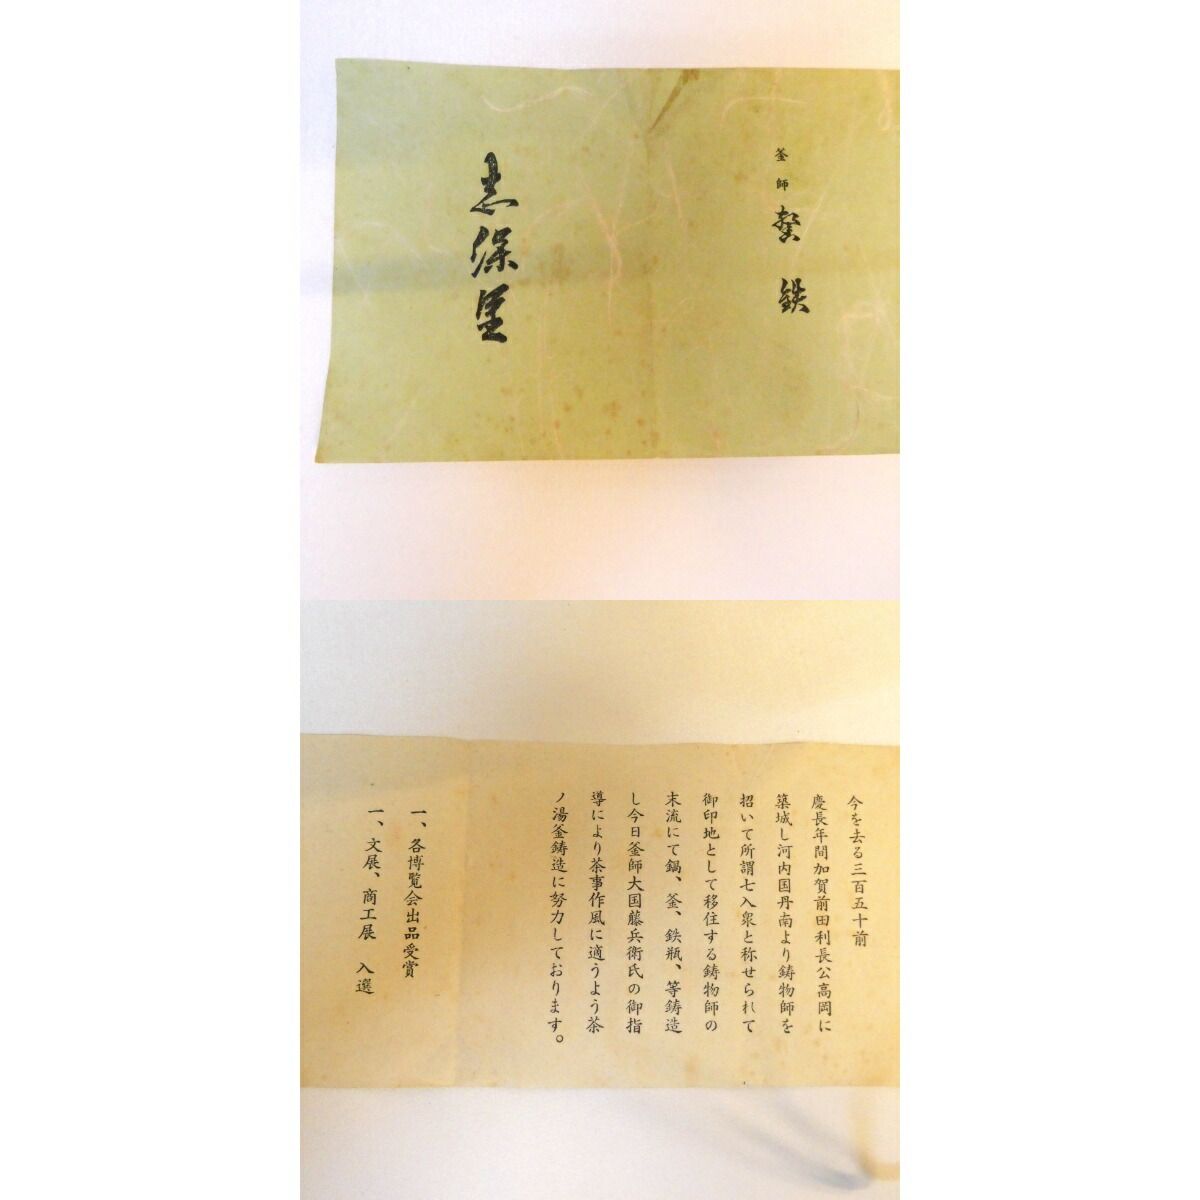 釜師 鉄
志保里
今を去る三百五十前
慶長年間加賀前田利長公高岡に
築城し河内国丹南より鋳物師を
招いて所謂七入衆と称せられて
御印地として移住する鋳物師の
末流にて鍋、釜、鉄瓶、等鋳造
し今日釜師大国藤兵衛氏の御指
導により茶事作風に適うよう茶
ノ湯釜鋳造に努力しております。
一、各博覧会出品受賞
一、文展、商工展 入選